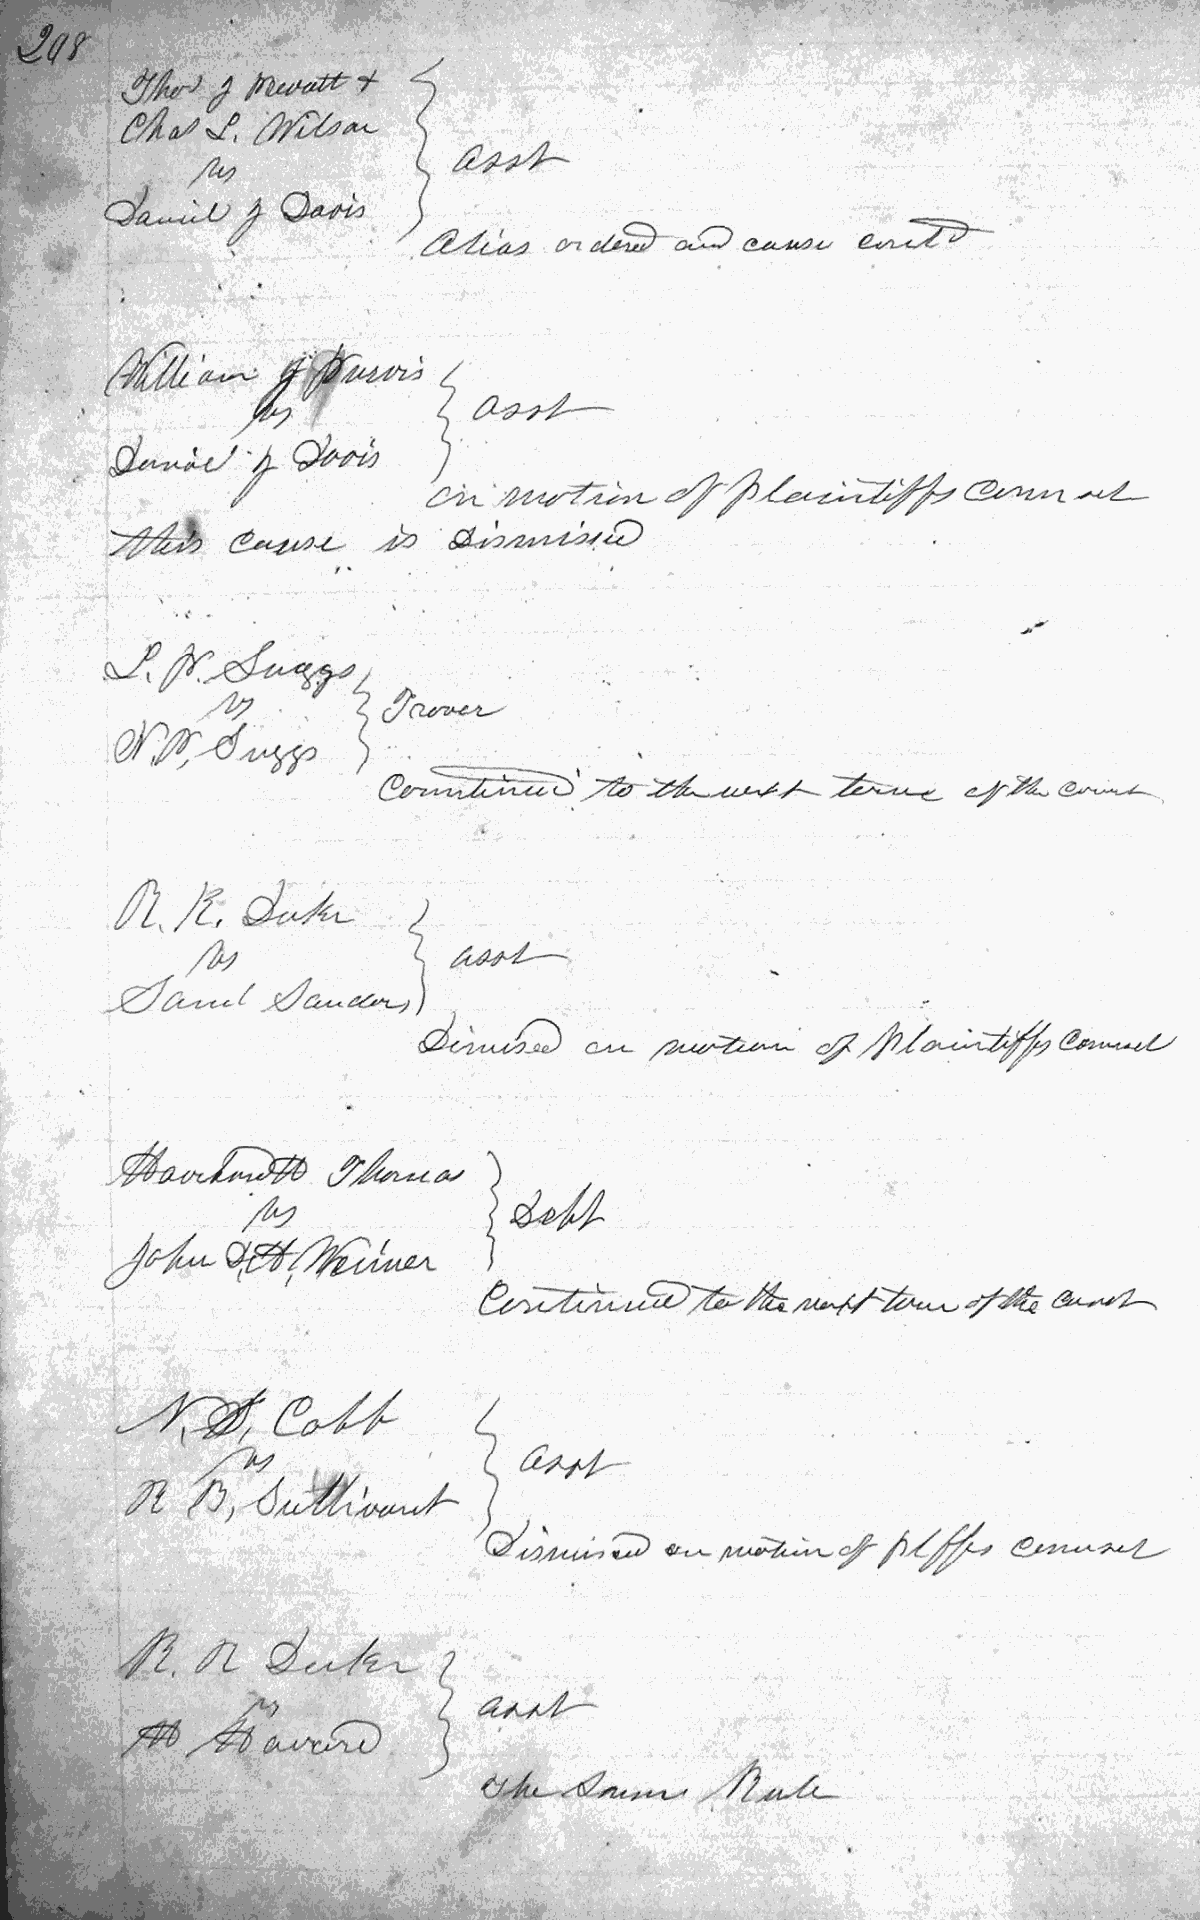 298
Thos J Prevatt &
Chas L. Wilson
vs
Daniel J Davis
Asst
Alias ordered and cause contd
William J Purvis
vs
Daniel J Davis
Asst
on motion of plaintiffs counsel
this cause is dismissed
L. W. Suggs
vs
N. W. Suggs
Trover
Countinued to the next term of the court
R. R. Duke
vs
Saml Sanders
asst
Dimised on motion of plaintiffs counsel
Thomas
vs
John D. H. Weimer
Debt
Continued to the next term of the court
N. D. Cobb
vs
R B. Sullivant
Asst
Dismised on motion of plffs counsel
R. R Duke
vs
H Havard
asst
The Same Rule